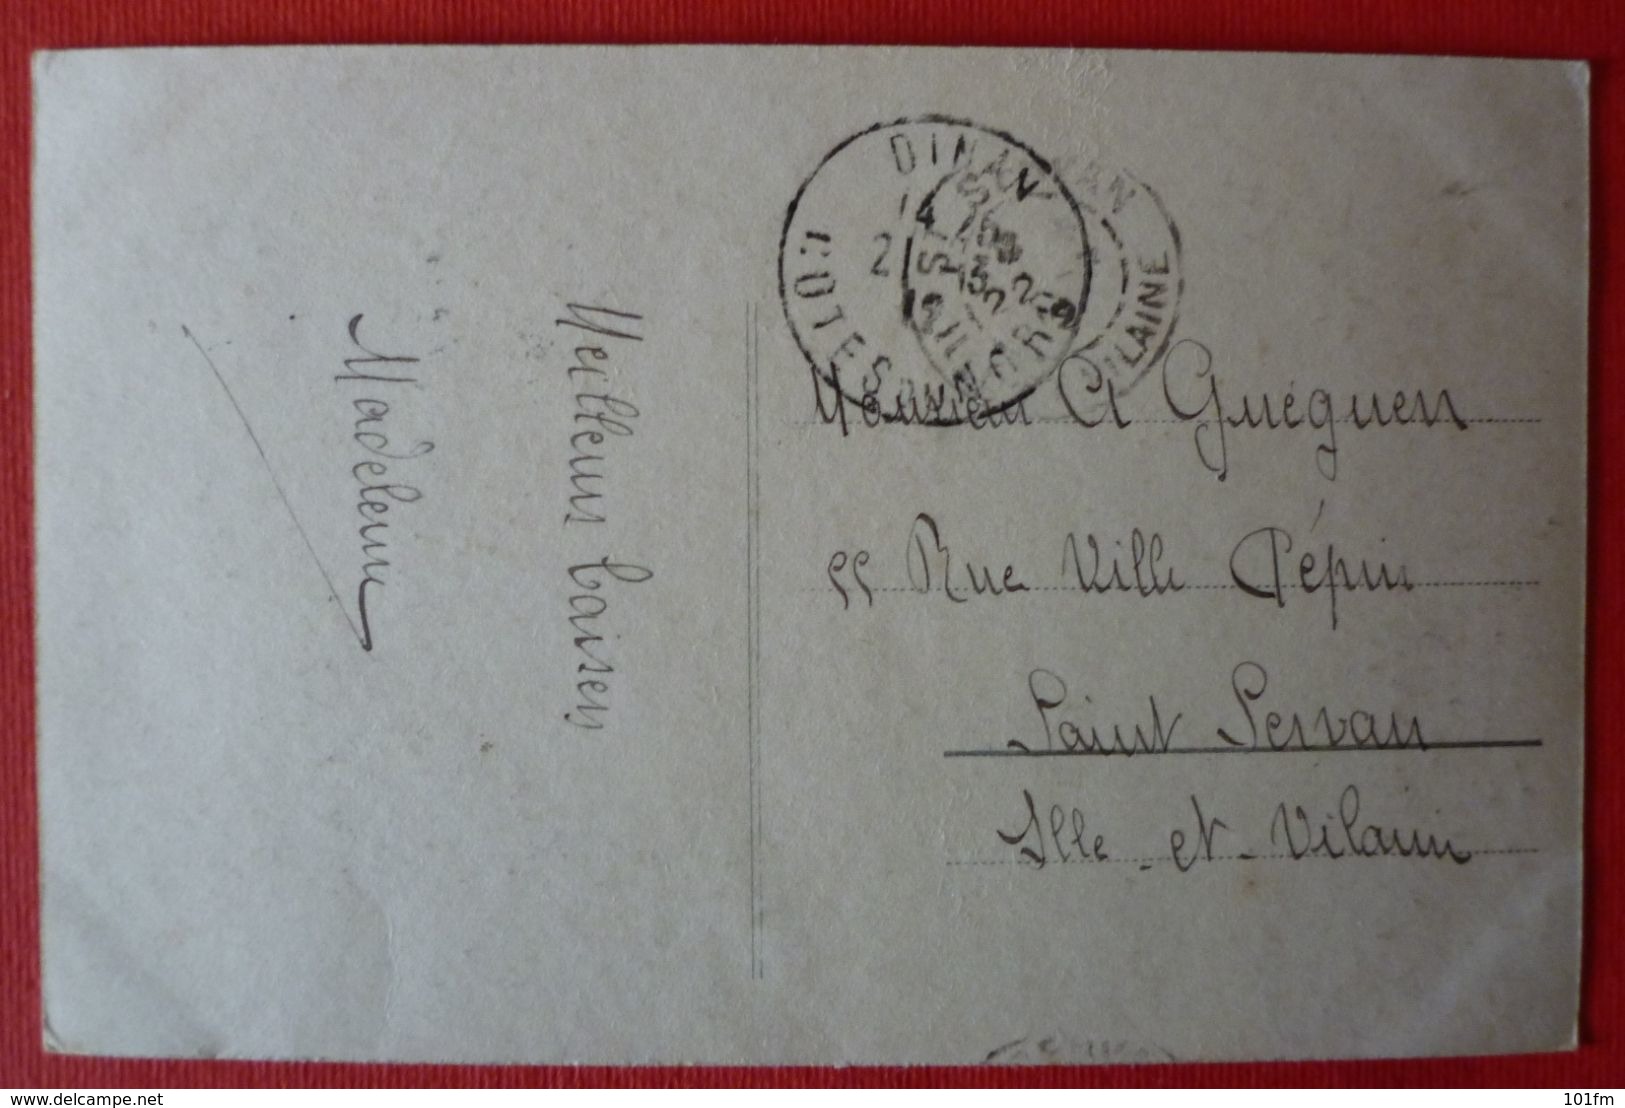 Meilleurs baisers
Madeleine
DINAN
COTES DU N
14
2
ST SERVAN
ILLE
VILAINE
Monsieur A Gueguen
55 Rue Ville Pépin
Saint Servan
Ille-et-Vilaine
www.delcampe.net
101fm